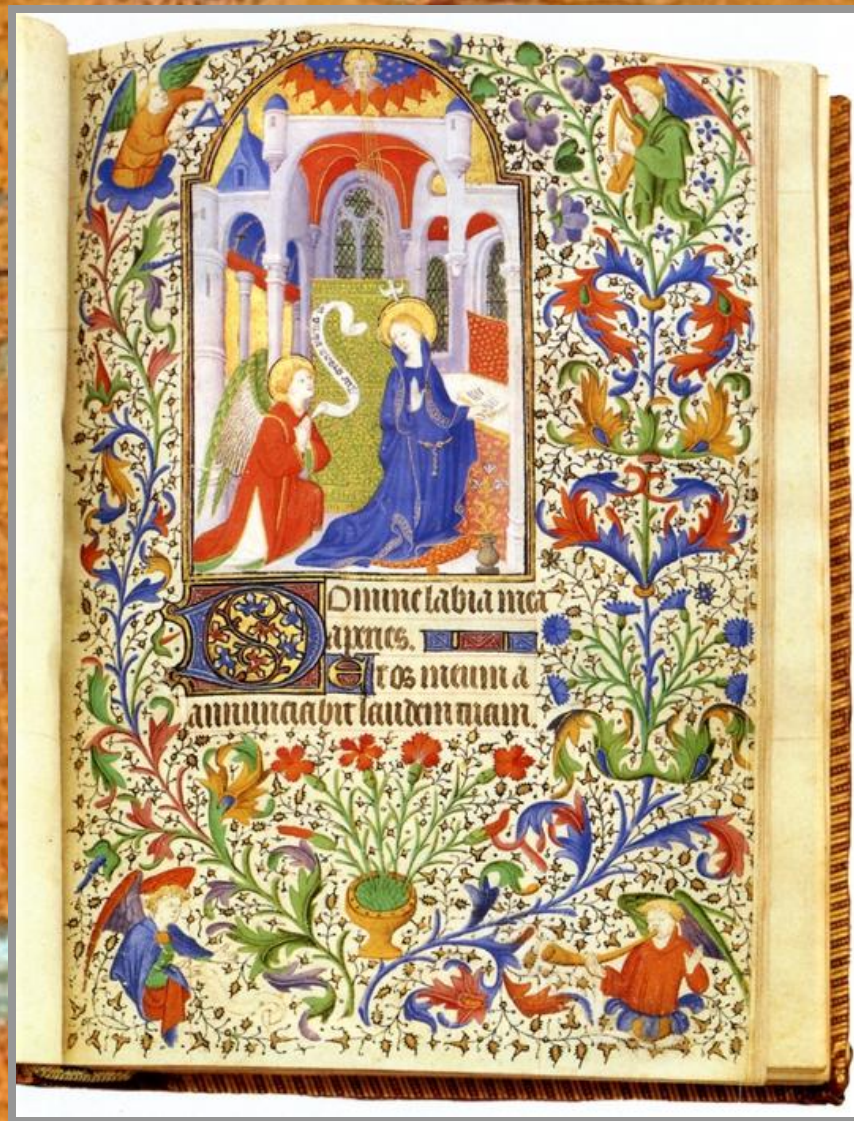 Domine labia mea
aperies.
Et os meum a
annunciabit laudem tuam.